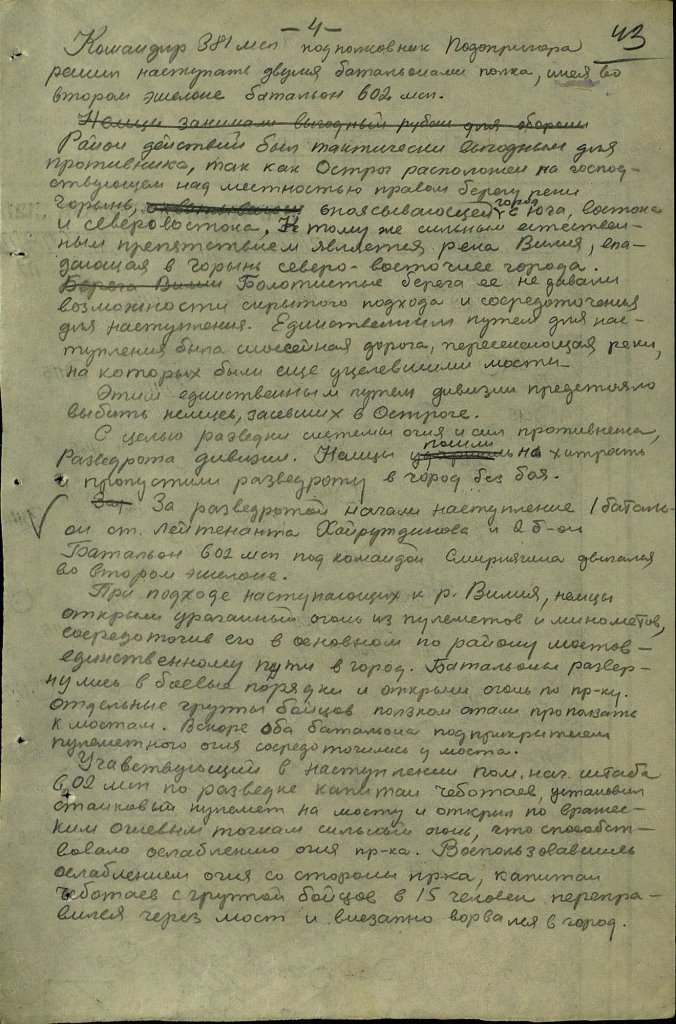 – 4 –
43
Командир 381 мсп подполковник Подопригора
решил наступать двумя батальонами полка, имея во
втором эшелоне батальон 602 мсп.
Немцы занимали выгодный рубеж для обороны
Район действий был тактически выгодным для
противника, так как Острог расположен на господ-
ствующем над местностью правом берегу реки
Горынь, опоясывающей город с юга, востока
и северовостока, К тому же сильным естествен-
ным препятствием является река Вилия, впа-
дающая в Горынь северо-восточнее города.
Берега Вилии Болотистые берега ее не давали
возможности скрытого подхода и сосредоточения
для наступления. Единственным путем для нас-
тупления была шоссейная дорога, пересекающая реки,
на которых были еще уцелевшими мосты
Этим единственным путем дивизии предстояло
выбить немцев, засевших в Остроге.
С целью разведки системы огня и сил противника,
Разведрота дивизии. Немцы пошли на хитрость
и пропустили разведроту в город без боя.
Зат За разведротой начали наступление 1 баталь-
он ст. лейтенанта Хайрутдинова и 2 б-он
Батальон 602 мсп под командой Смирягина двигался
во втором эшелоне.
При подходе наступающих к р. Вилия, немцы
открыли ураганный огонь из пулеметов и минометов,
сосредоточив его в основном по району мостов –
единственному пути в город. Батальоны развер-
нулись в боевые порядки и открыли огонь по пр-ку.
Отдельные группы бойцов ползком стали проползать
к мостам. Вскоре оба батальона под прикрытием
пулеметного огня сосредоточились у моста.
Учавствующий в наступлении пом. нач. штаба
602 мсп по разведке капитан Чеботаев, установил
станковый пулемет на мосту и открыл по вражес-
ким огневым точкам сильный огонь, что способст-
вовало ослаблению огня пр-ка. Воспользовавшись
ослаблением огня со стороны пр-ка, капитан
Чеботаев с группой бойцов в 15 человек перепра-
вился через мост и внезапно ворвался в город.